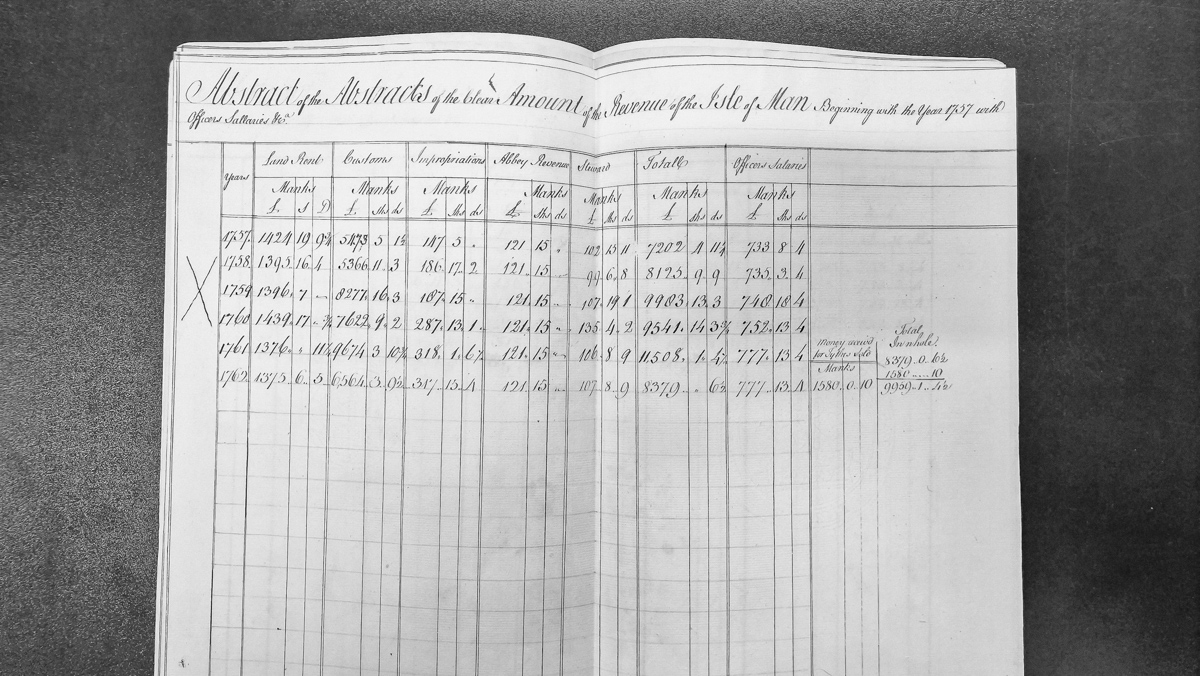 Abstract of the Abstracts of the Clear Amount of the Revenue of the Isle of Man Beginning with the Year 1757 with
Officers Sallaries &c.a
Years Land Rent Customs Impropriations Abbey Revenue Steward Totall Officers Salaries
Manks Manks Manks Manks Manks Manks Manks
£ S D £ shs ds £ shs ds £ shs ds £ shs ds £ shs ds £ shs ds
1757 1424 19 9¾ 5473 5 1½ 147 5 " 121 15 " 102 15 11 7202 4 11¼ 733 8 4
1758 1395 16 4 5366 11 3 186 17 2 121 15 99 6 8 8125 9 9 735 3 4
1759 1396 7 8277 16 3 187 15 " 121 15 107 19 1 9983 13 3 748 18 4
1760 1439 17 " ¾ 7622 9 2 287 13 1 121 15 " 135 4 2 9541 14 3¾ 752 13 4
1761 1376 " 11¼ 9674 3 10¾ 318 1 6½ 121 15 " 106 8 9 11508 1 4½ 777 13 4
money
for
Manks
Total
In whole
8379 0 6½
1580 10
9959 1 4½
1762 1375 6 5 6564 3 9½ 317 15 4 121 15 107 8 9 8379 " 6½ 777 13 4 1580 0 10